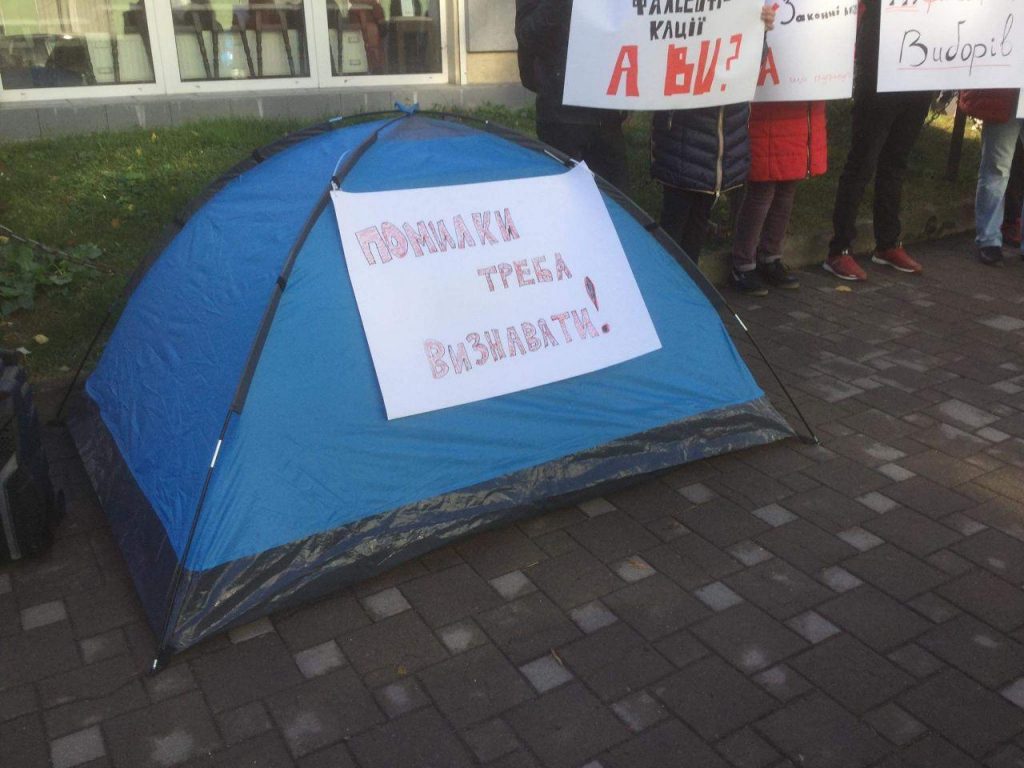 ПОМИЛКИ
ТРЕБА
ВИЗНАВАТИ!
КАЦІЇ
А ВИ?
Законні
А
Виборів